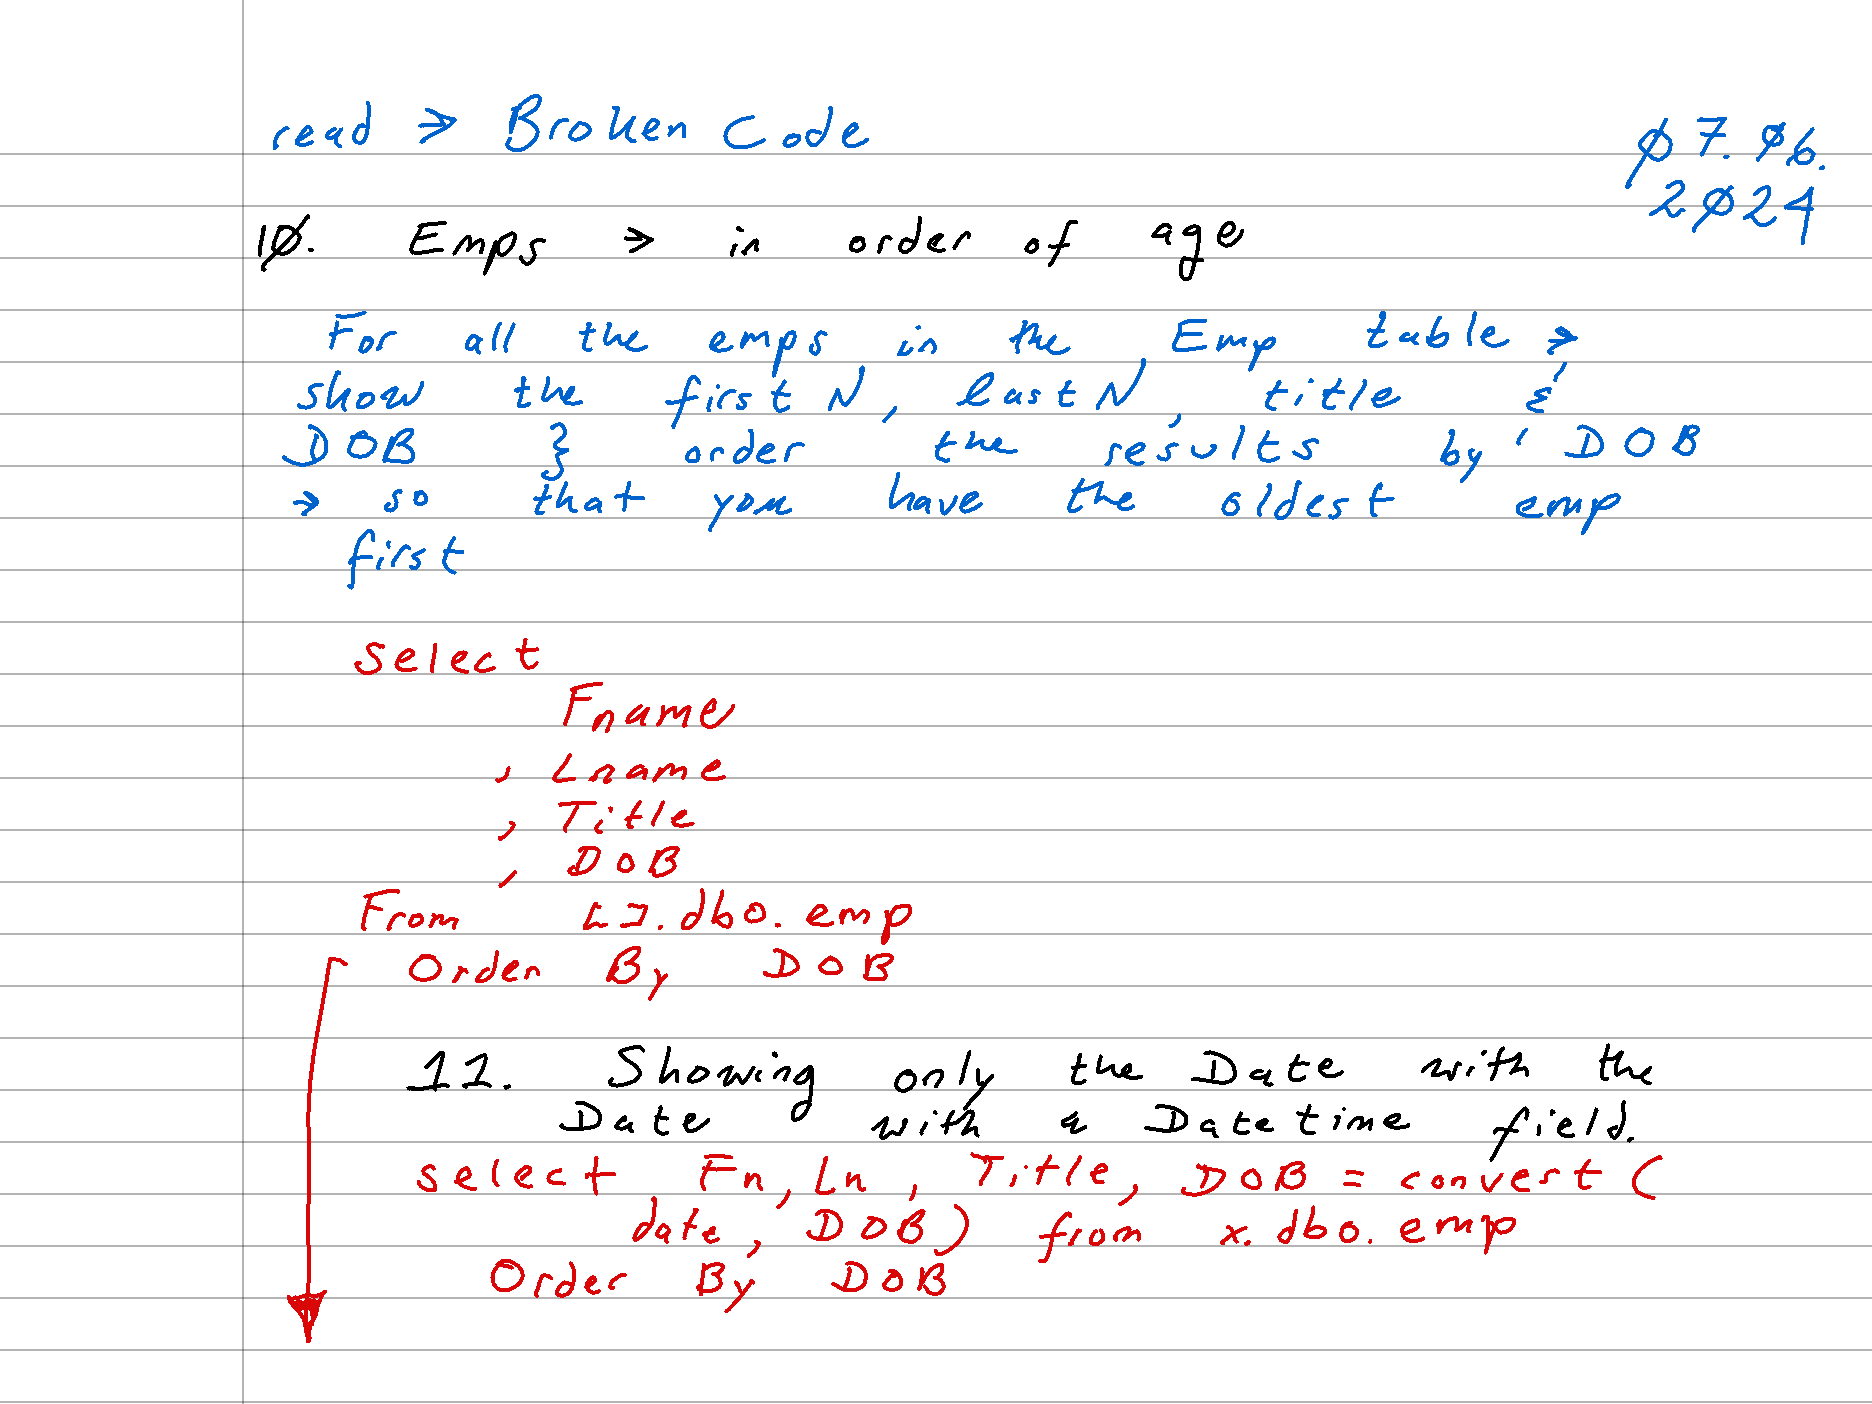 read → Broken Code
07.06.
2024
10. Emps → in order of age
For all the emps in the Emp table →
show the first N, last N, title &
DOB } order the results by DOB
→ so that you have the oldest emp
first
Select
Fname
, Lname
, Title
, DOB
From [].dbo.emp
Order By DOB
11. Showing only the Date with the
Date with a Datetime field.
select Fn, Ln, Title, DOB = convert (
date, DOB) from x.dbo.emp
Order By DOB